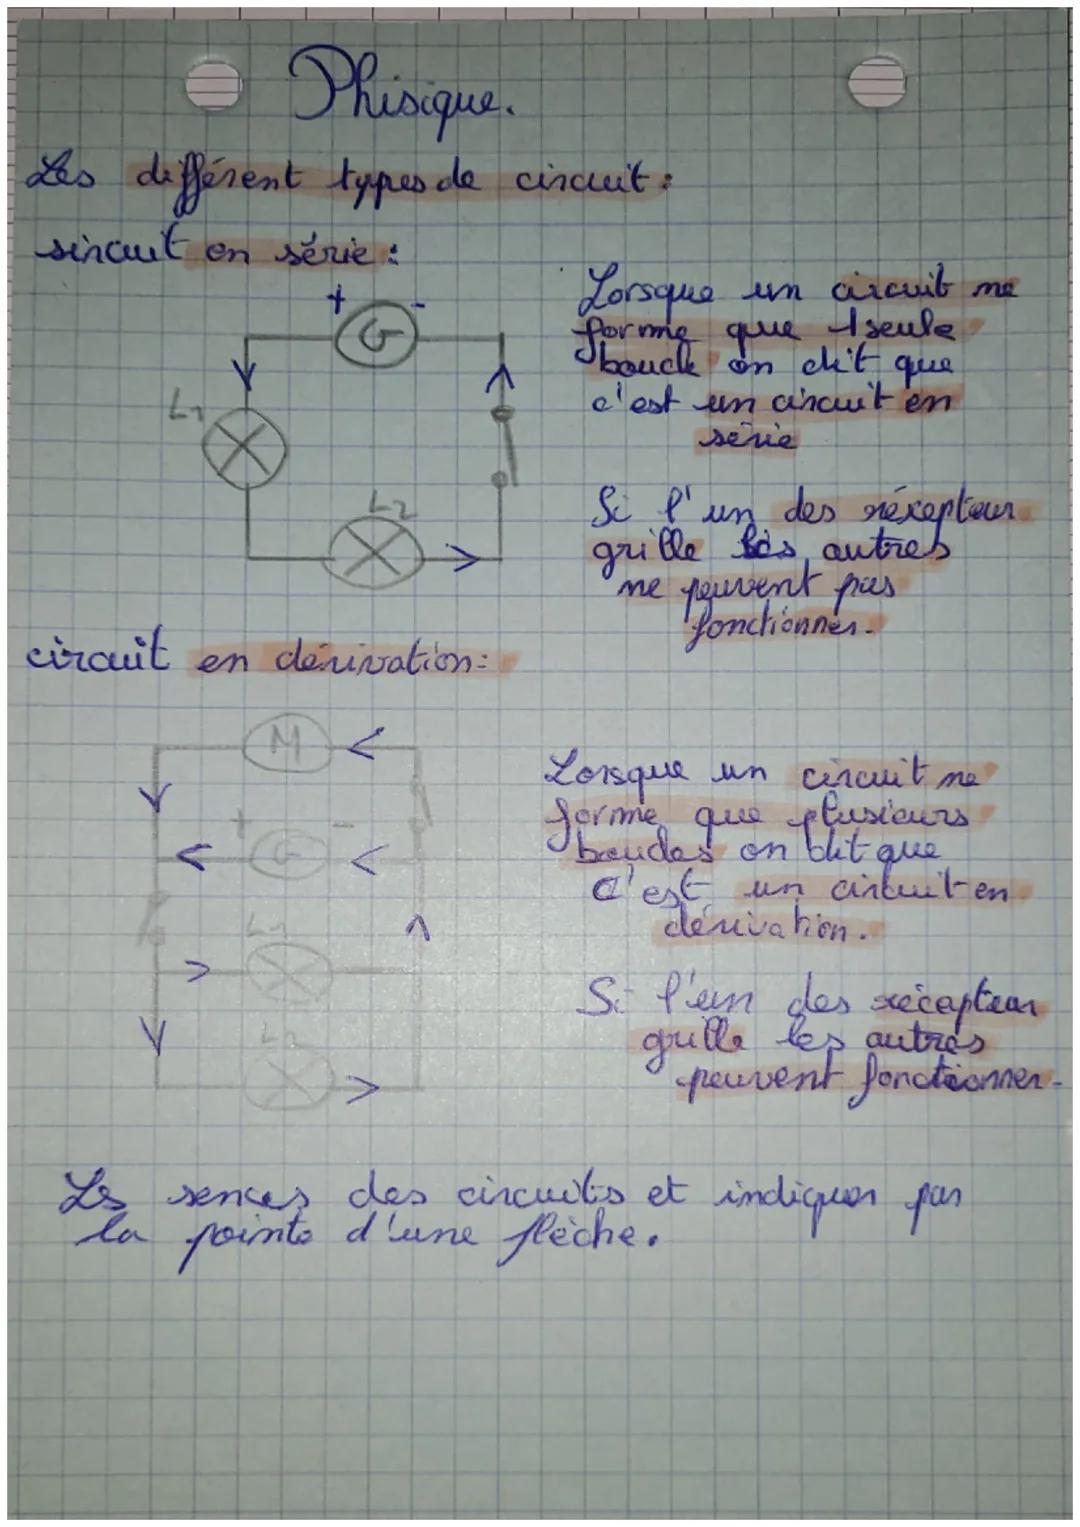 Phisique.
Les différent types de circuit :
sircuit en série :
+ -
G
L1
L2
Lorsque un circuit ne
forme que 1 seule
boucle on dit que
c'est un circuit en
série
Si l'un des récepteur
grille les autres
ne peuvent pas
fonctionner.
circuit en dérivation :
M
+ -
G
L1
L2
Lorsque un circuit ne
forme que plusieurs
boucles on dit que
c'est un circuit en
dérivation.
Si l'un des récepteur
grille les autres
peuvent fonctionner.
Les sences des circuits et indiquer par
la pointe d'une flèche.